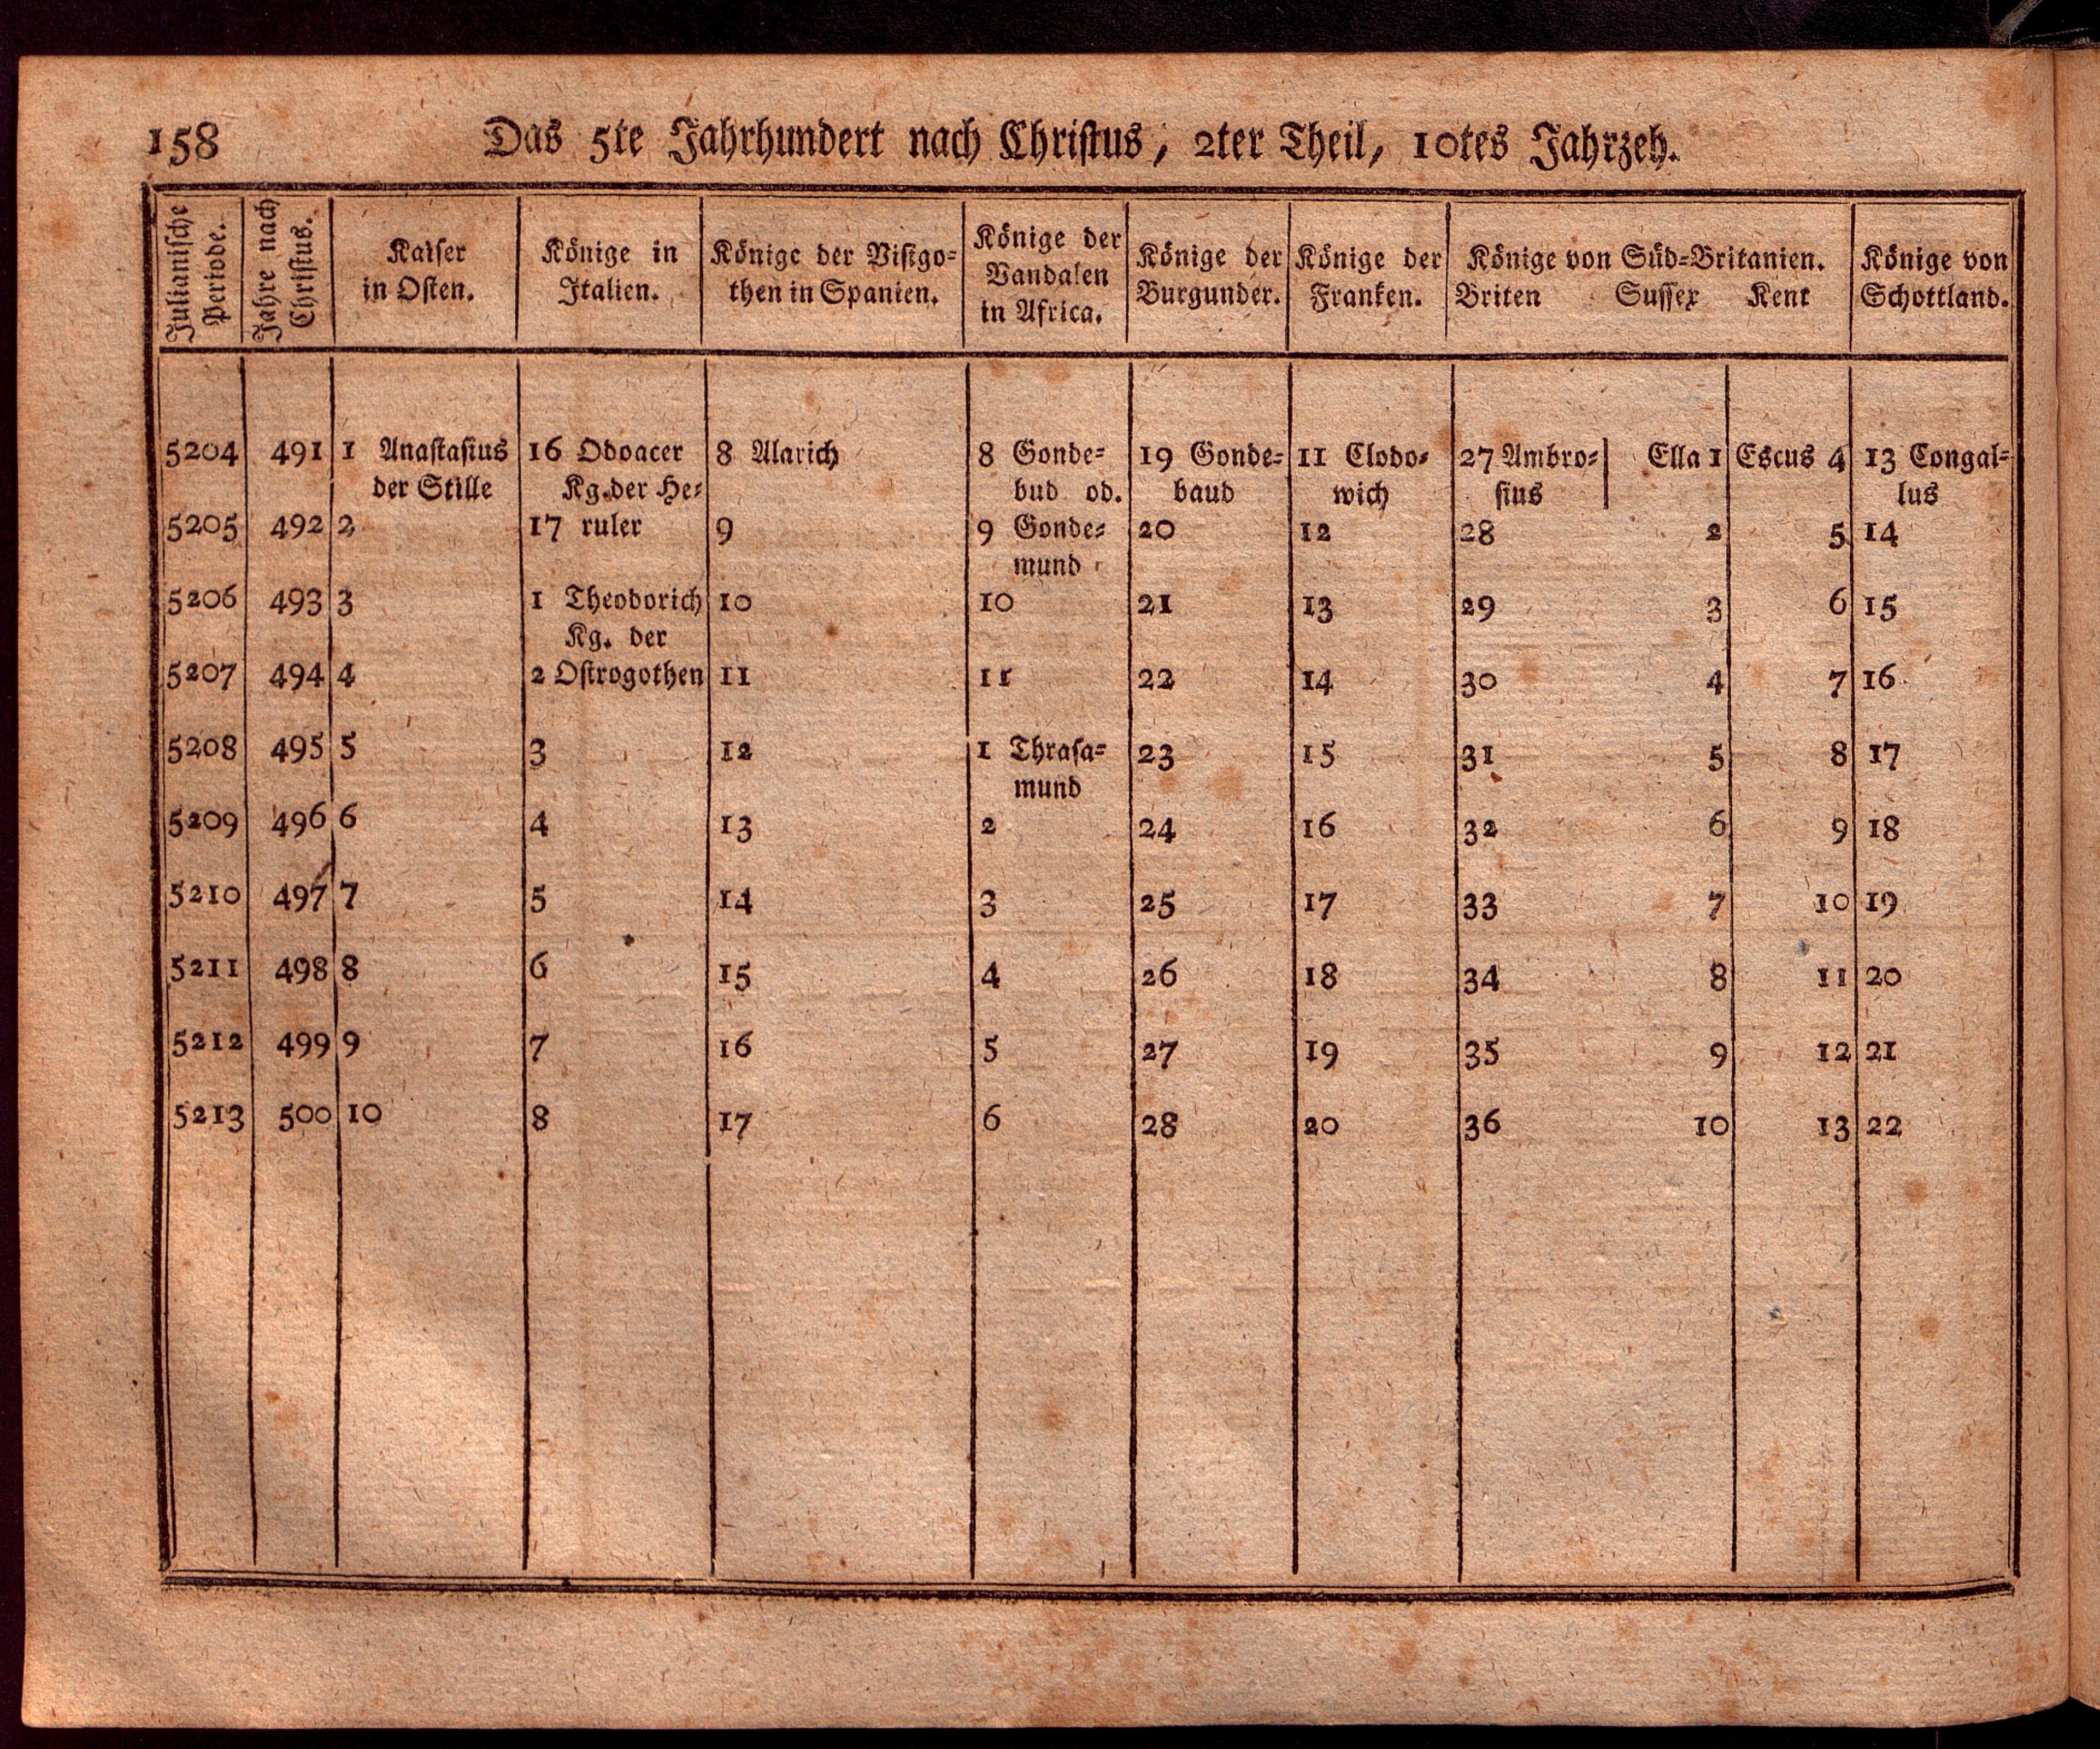 158 Das 5te Jahrhundert nach Christus, 2ter Theil, 10tes Jahrzeh.
Julianische Periode. | Jahre nach Christus. | Kaiser in Osten. | Könige in Italien. | Könige der Visigo=then in Spanien. | Könige der Vandalen in Africa. | Könige der Burgunder. | Könige der Franken. | Könige von Süd=Britanien. Briten Sussex Kent | Könige von Schottland.
5204 491 1 Anastasius 16 Odoacer 8 Alarich 8 Gonde= 19 Gonde= 11 Clodo= 27 Ambro= Ella 1 Escus 4 13 Congal=
der Stille Kg. der He= bud od. baud wich sius lus
5205 492 2 17 ruler 9 9 Gonde= 20 12 28 2 5 14
mund
5206 493 3 1 Theodorich 10 10 21 13 29 3 6 15
Kg. der
5207 494 4 2 Ostrogothen 11 11 22 14 30 4 7 16
5208 495 5 3 12 1 Thrasa= 23 15 31 5 8 17
mund
5209 496 6 4 13 2 24 16 32 6 9 18
5210 497 7 5 14 3 25 17 33 7 10 19
5211 498 8 6 15 4 26 18 34 8 11 20
5212 499 9 7 16 5 27 19 35 9 12 21
5213 500 10 8 17 6 28 20 36 10 13 22